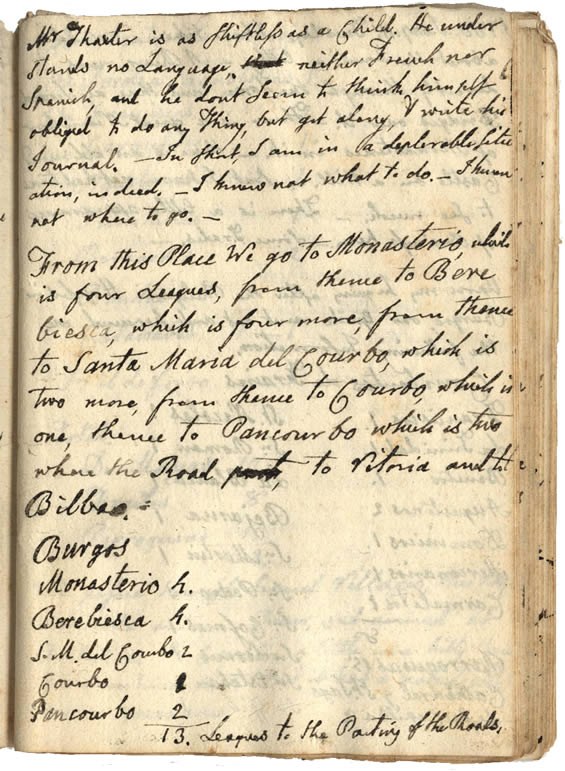 Mr Thaxter is as shiftless as a Child. He under
stands no Language, neither French nor
Spanish, and he dont Seem to think himself
obliged to do any Thing, but get along, & write his
Journal. — In short, I am in a deplorable Situ
ation, indeed. — I know not what to do. — I know
not where to go. —
From this Place We go to Monasterio, which
is four Leagues, from thence to Bere
biesca, which is four more, from thence
to Santa Maria del Courbo, which is
two more, from thence to Courbo, which is
one, thence to Pancourbo which is two
where the Road to Vitoria and to
Bilbao.
Burgos
Monasterio 4.
Berebiesca 4.
S. M. del Courbo 2
Courbo 1
Pancourbo 2
13. Leagues to the Parting of the Roads.